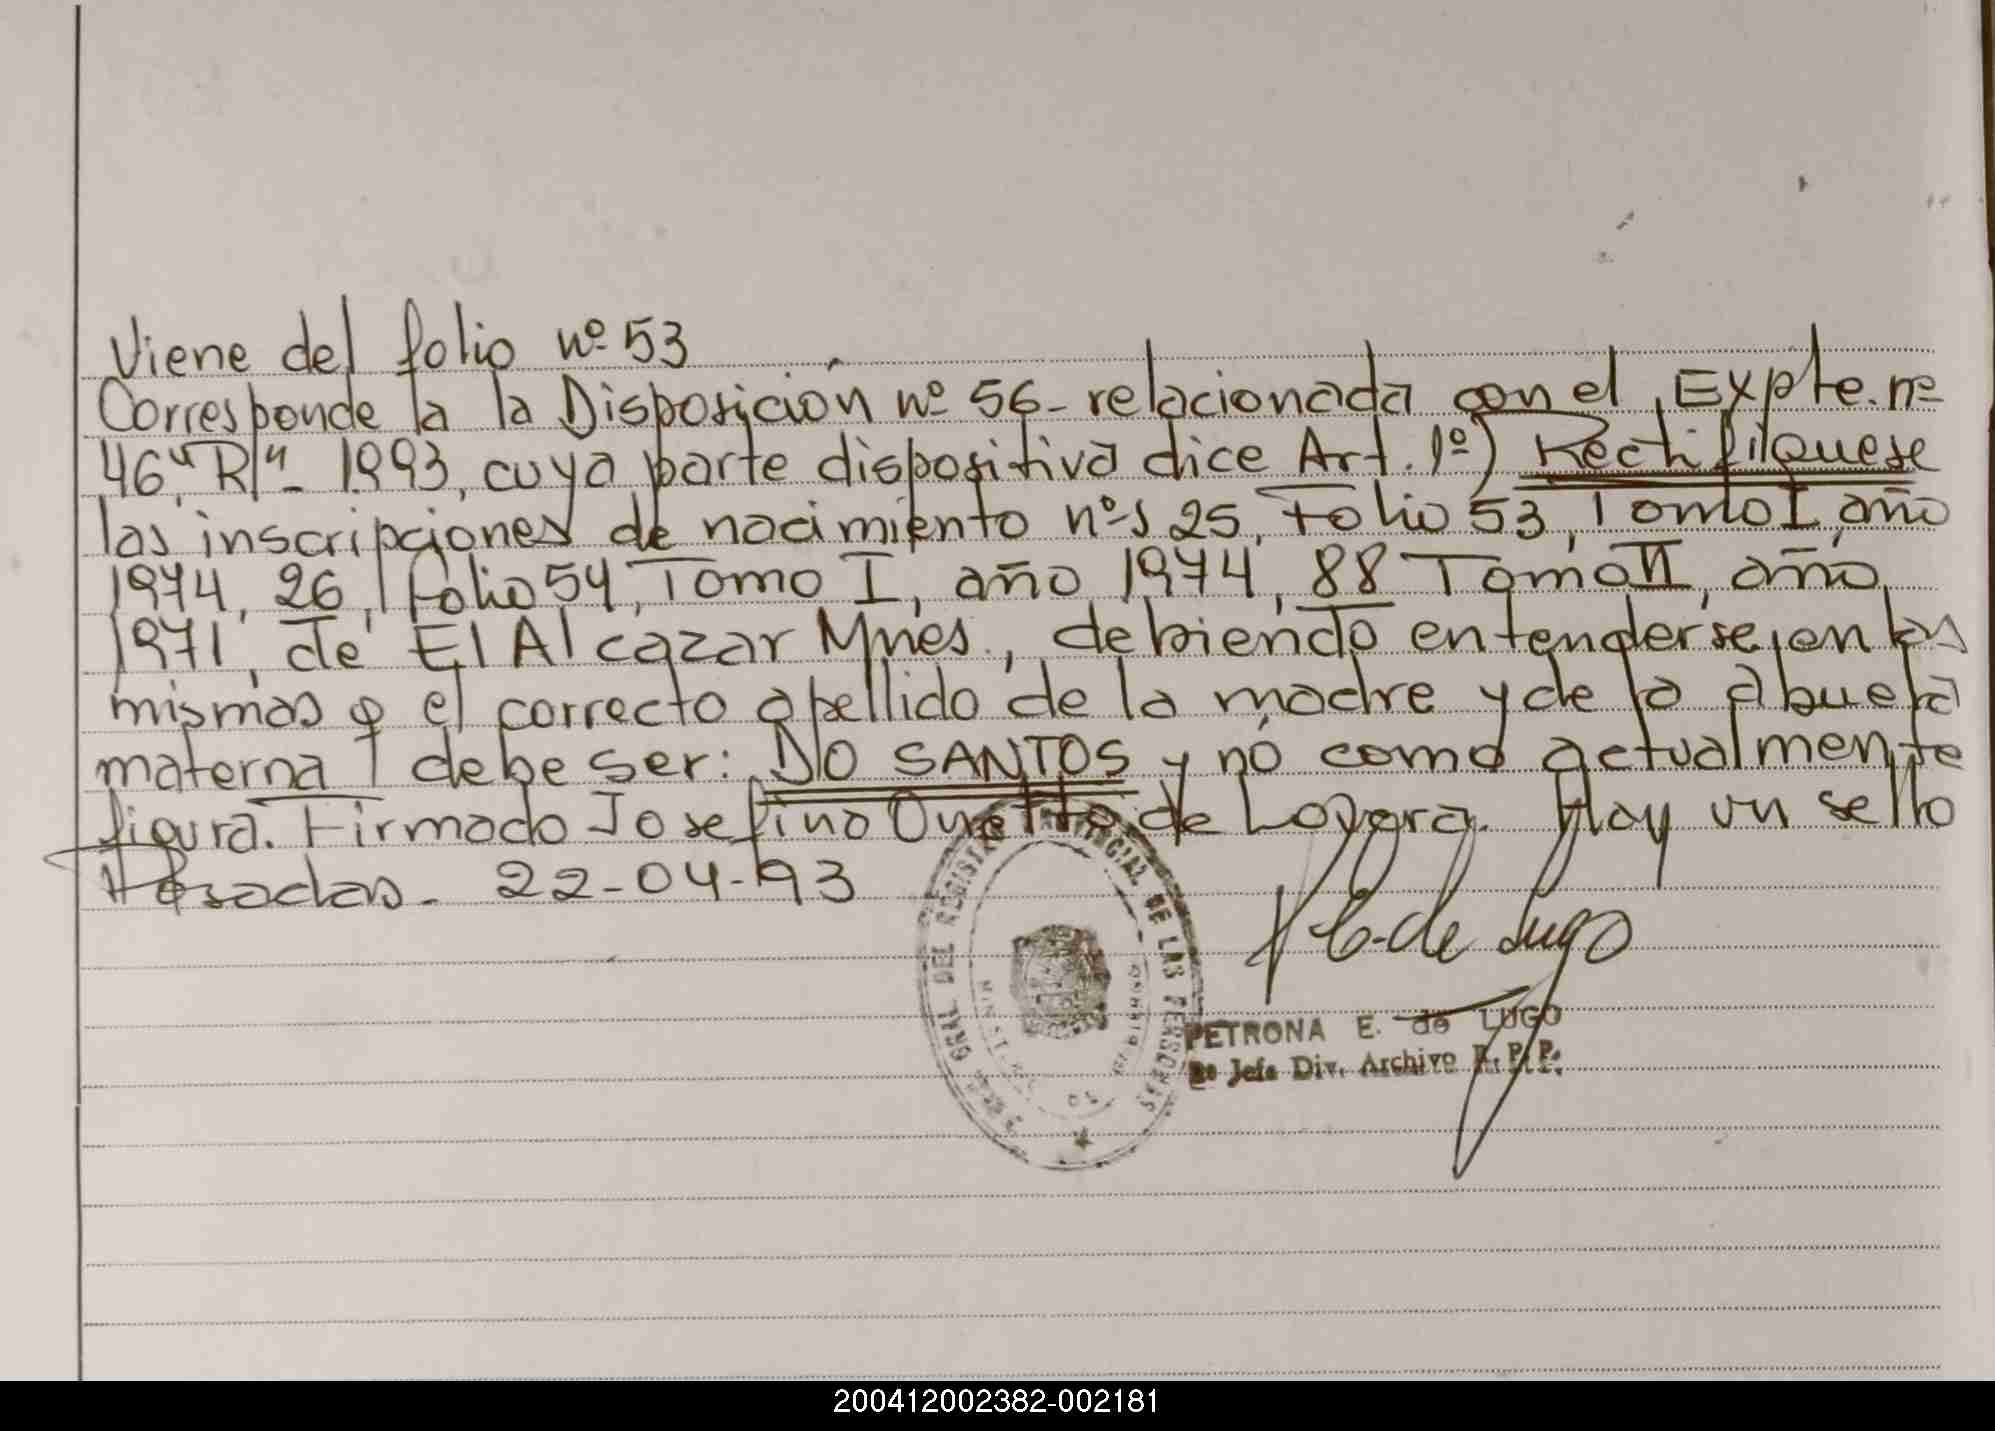 Viene del folio nº 53
Corresponde a la Disposición nº 56 - relacionada con el Expte. nº
46 "R" - 1993, cuya parte dispositiva dice Art. 1º) Rectifiquese
las inscripciones de nacimiento nºs 25, Folio 53, Tomo I, año
1974, 26, folio 54, Tomo I, año 1974, 88 Tomo II, año
1971, de El Alcazar Mnes., debiendo entenderse en las
mismas q el correcto apellido de la madre y de la abuela
materna debe ser: DO SANTOS y nó como actualmente
figura. Firmado Josefina de Hay un sello
Posadas. 22-04-93
GRAL DEL REGISTRO PROVINCIAL DE LAS PERSONAS
P. E. de Lugo
PETRONA E. de LUGO
Jefe Div. Archivo R. P. P.
200412002382-002181